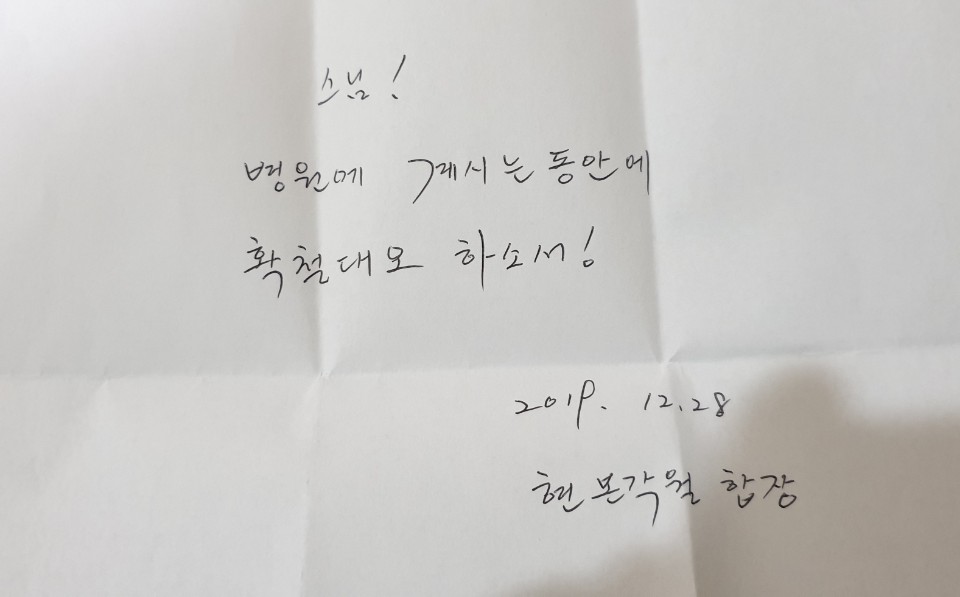 스님!
병원에 계시는 동안에
확철대오 하소서!
2019. 12.28
현 본각월 합장